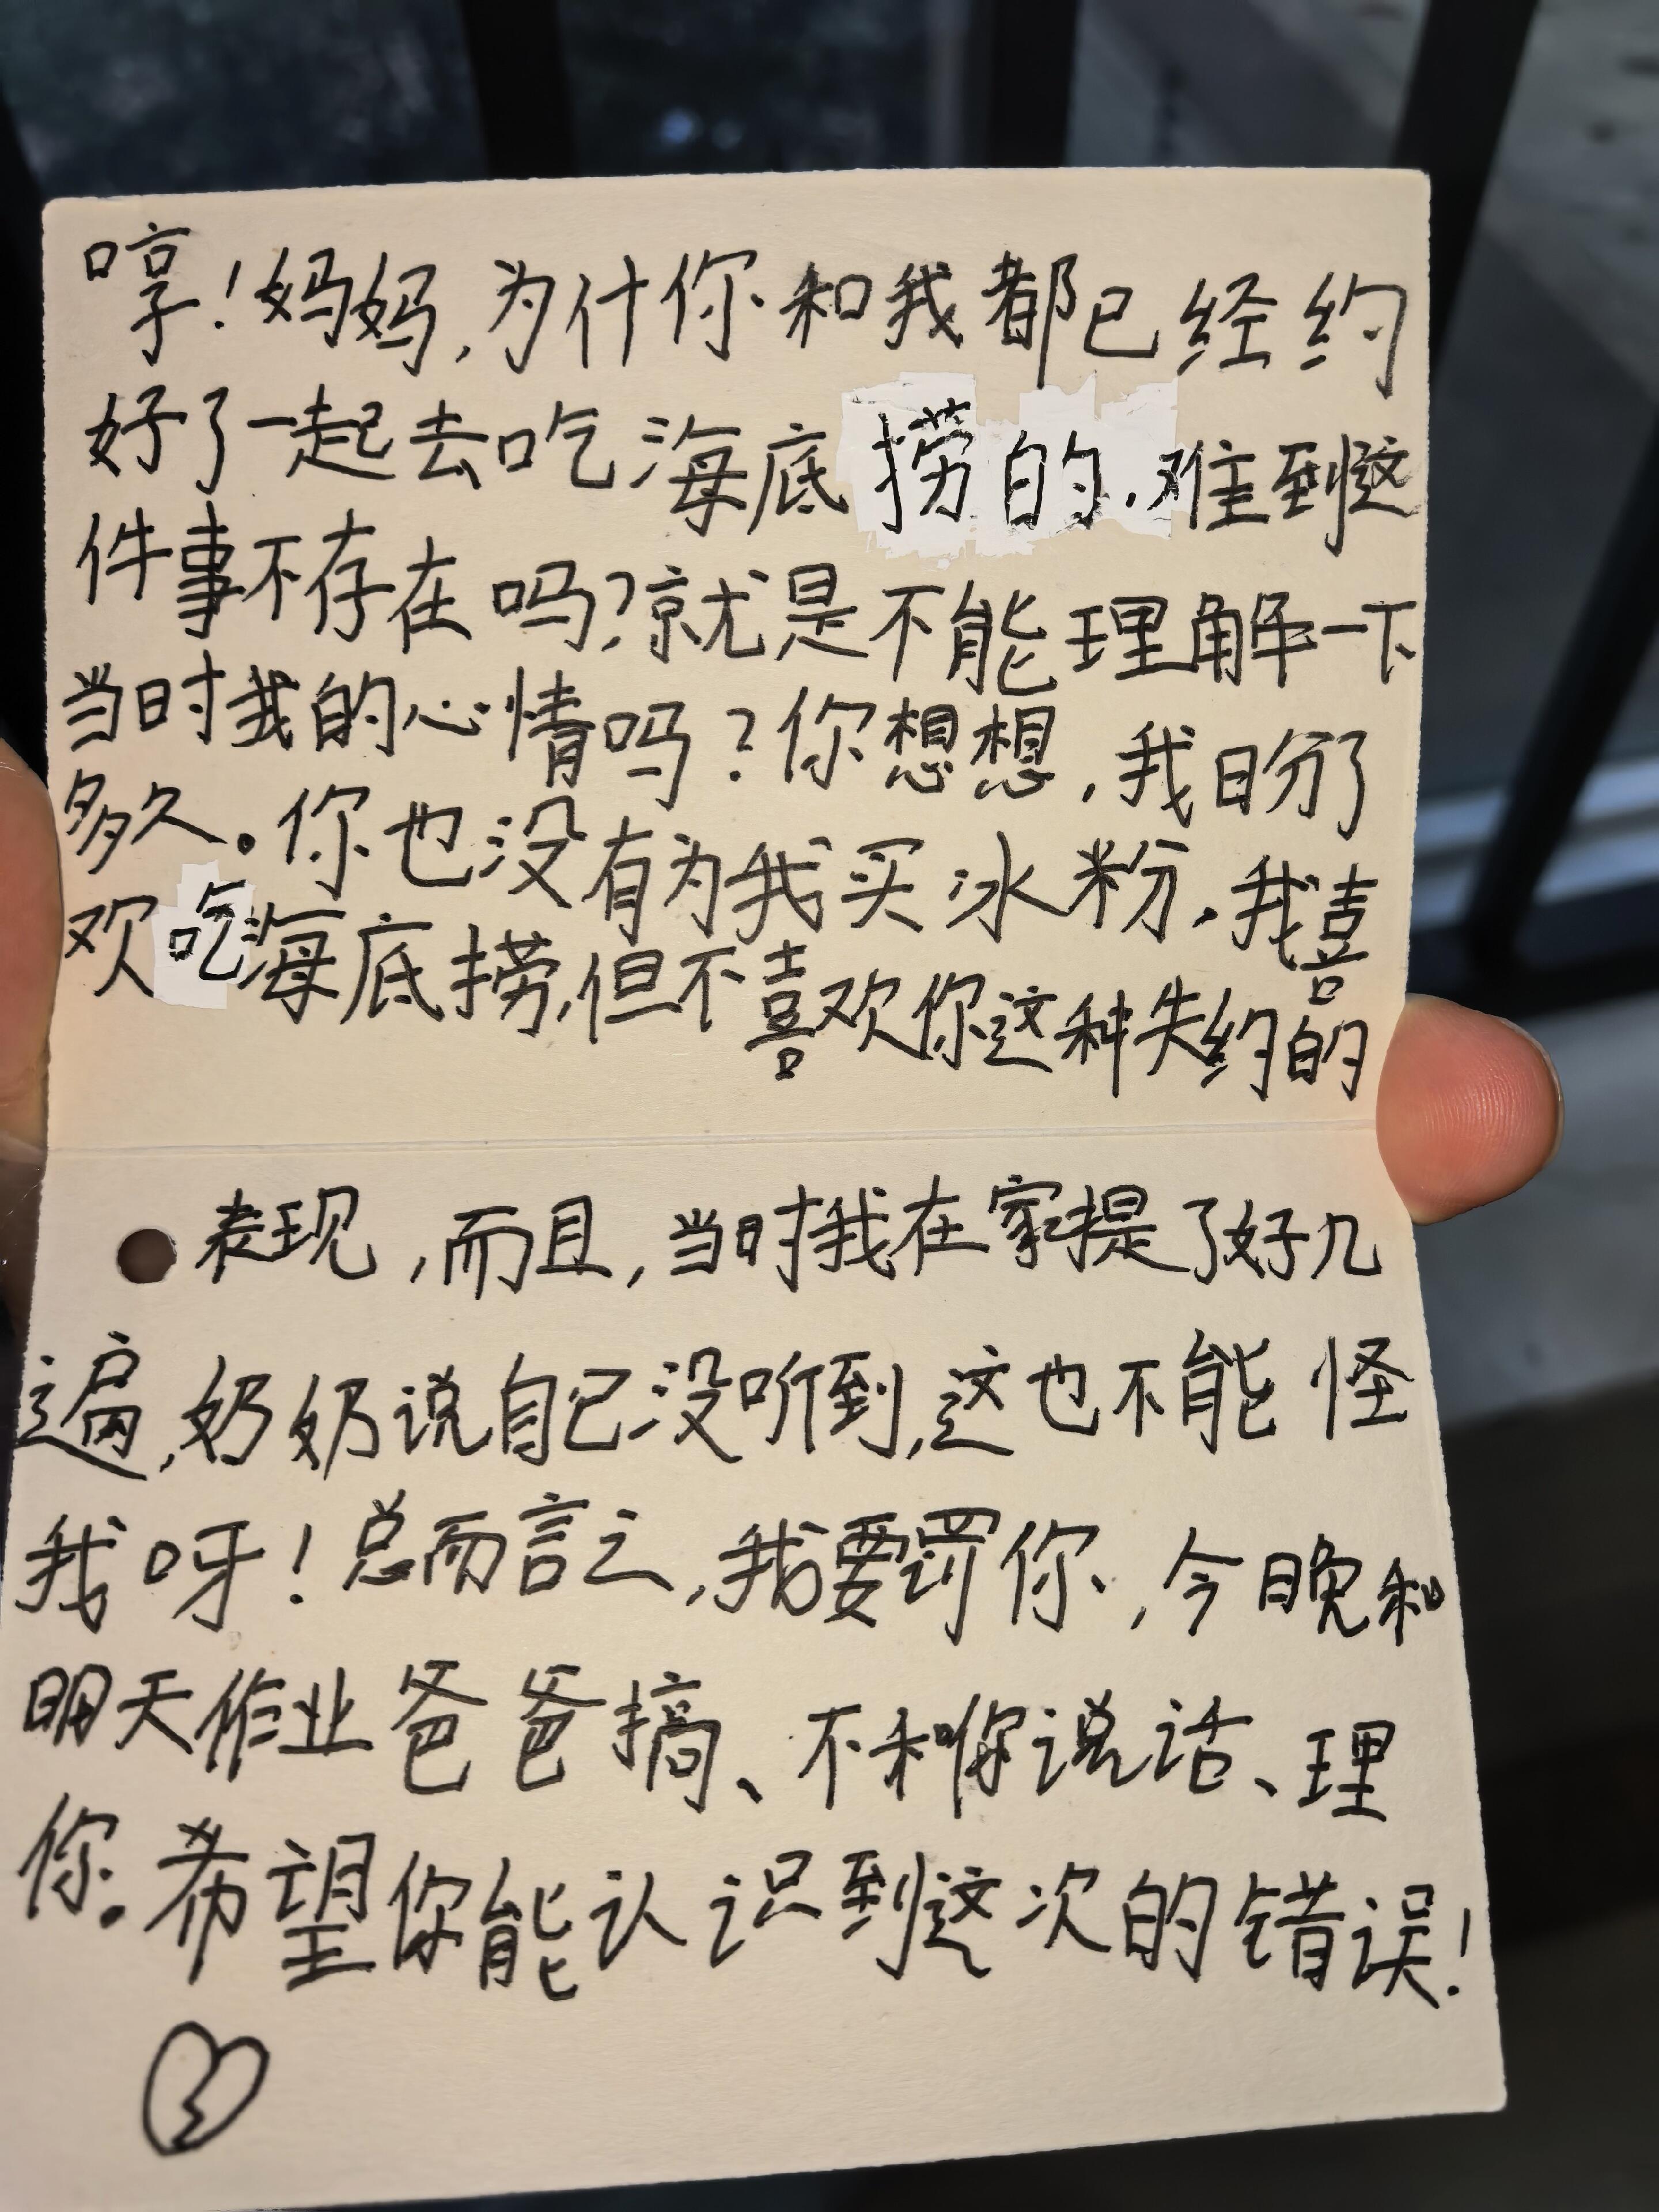 哼！妈妈，为什你和我都已经约
好了一起去吃海底捞的，难到这
件事不存在吗？就是不能理解一下
当时我的心情吗？你想想，我盼了
多久。你也没有为我买冰粉，我喜
欢吃海底捞，但不喜欢你这种失约的
表现，而且，当时我在家提了好几
遍，奶奶说自己没听到，这也不能怪
我呀！总而言之，我要罚你，今晚和
明天作业爸爸搞、不和你说话、理
你。希望你能认识到这次的错误！